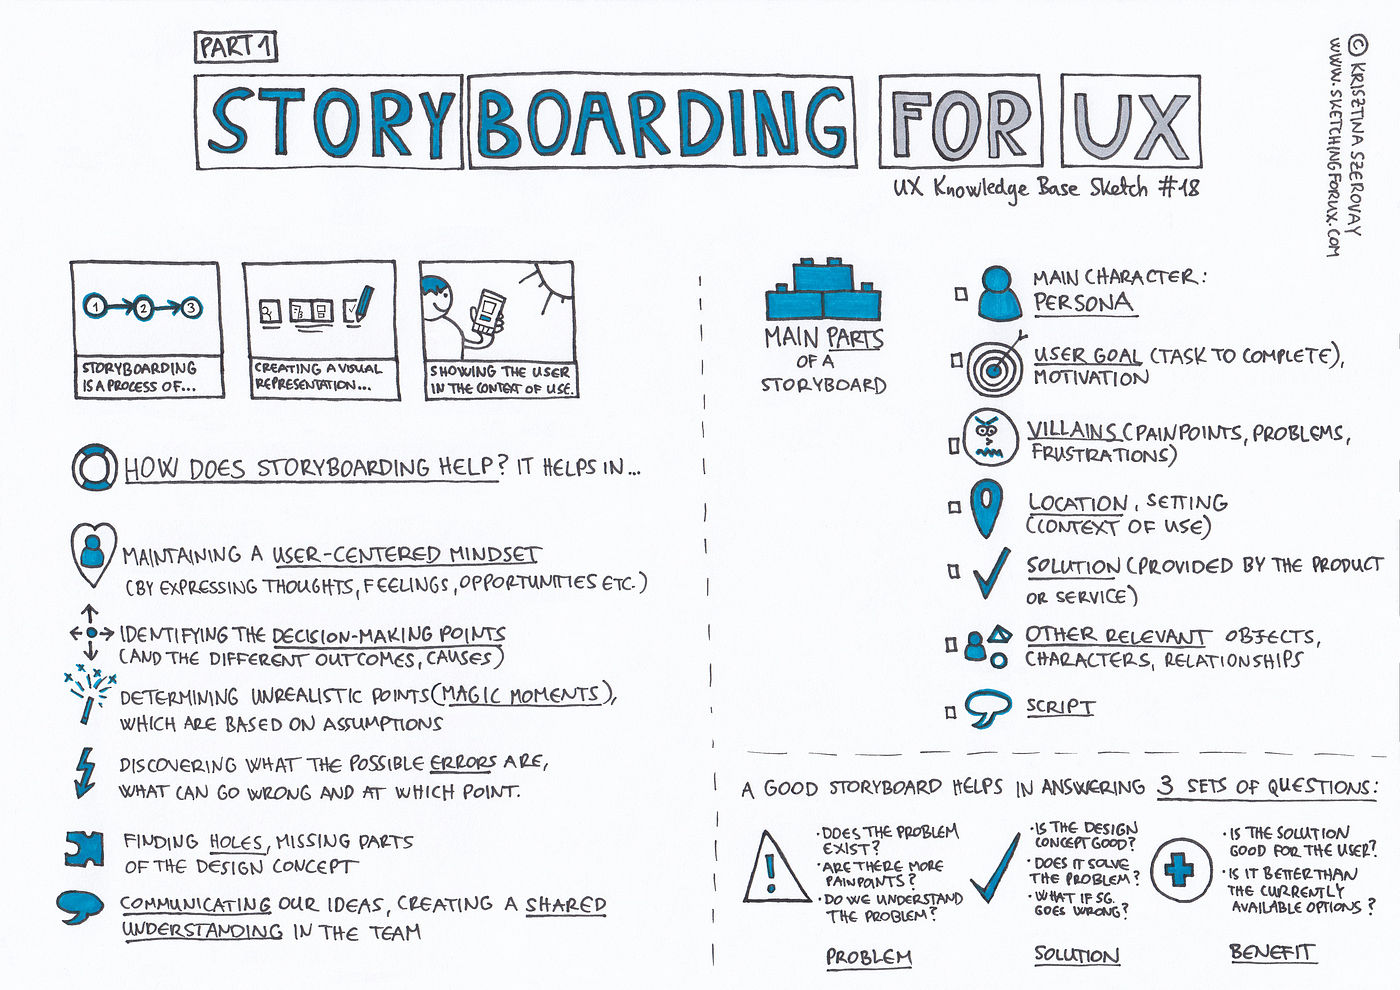 PART 1
STORYBOARDING FOR UX
UX Knowledge Base Sketch #18
© KRISZTINA SZEROVAY
WWW.SKETCHINGFORUX.COM
1 2 3
STORYBOARDING
IS A PROCESS OF...
CREATING A VISUAL
REPRESENTATION...
SHOWING THE USER
IN THE CONTEXT OF USE.
HOW DOES STORYBOARDING HELP? IT HELPS IN...
MAINTAINING A USER-CENTERED MINDSET
(BY EXPRESSING THOUGHTS, FEELINGS, OPPORTUNITIES ETC.)
IDENTIFYING THE DECISION-MAKING POINTS
(AND THE DIFFERENT OUTCOMES, CAUSES)
DETERMINING UNREALISTIC POINTS (MAGIC MOMENTS),
WHICH ARE BASED ON ASSUMPTIONS
DISCOVERING WHAT THE POSSIBLE ERRORS ARE,
WHAT CAN GO WRONG AND AT WHICH POINT.
FINDING HOLES, MISSING PARTS
OF THE DESIGN CONCEPT
COMMUNICATING OUR IDEAS, CREATING A SHARED
UNDERSTANDING IN THE TEAM
MAIN PARTS
OF A
STORYBOARD
MAIN CHARACTER:
PERSONA
USER GOAL (TASK TO COMPLETE),
MOTIVATION
VILLAINS (PAINPOINTS, PROBLEMS,
FRUSTRATIONS)
LOCATION, SETTING
(CONTEXT OF USE)
SOLUTION (PROVIDED BY THE PRODUCT
OR SERVICE)
OTHER RELEVANT OBJECTS,
CHARACTERS, RELATIONSHIPS
SCRIPT
A GOOD STORYBOARD HELPS IN ANSWERING 3 SETS OF QUESTIONS:
!
• DOES THE PROBLEM
EXIST?
• ARE THERE MORE
PAINPOINTS?
• DO WE UNDERSTAND
THE PROBLEM?
PROBLEM
• IS THE DESIGN
CONCEPT GOOD?
• DOES IT SOLVE
THE PROBLEM?
• WHAT IF SG.
GOES WRONG?
SOLUTION
• IS THE SOLUTION
GOOD FOR THE USER?
• IS IT BETTER THAN
THE CURRENTLY
AVAILABLE OPTIONS?
BENEFIT